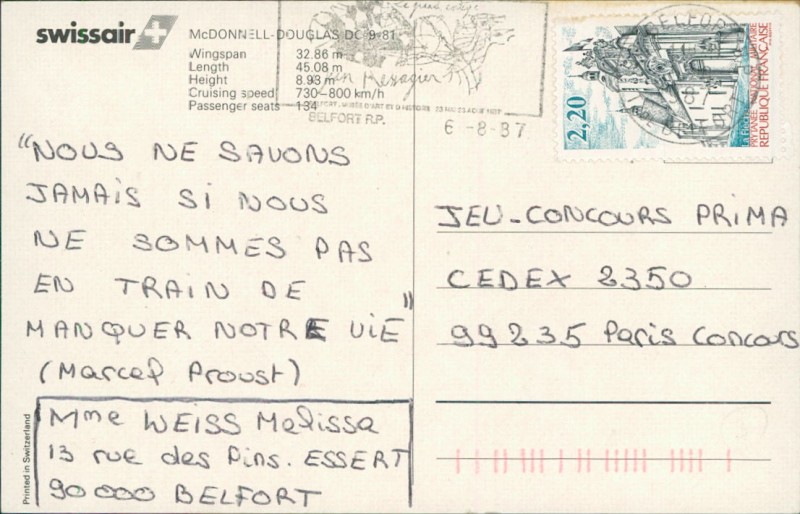 swissair
McDONNELL-DOUGLAS DC-9-81
Wingspan 32.86 m
Length 45.08 m
Height 8.93 m
Cruising speed 730-800 km/h
Passenger seats 134
BELFORT R.P.
6 -8-87
BELFORT
2,20
LA FLÈCHE
PRYTANÉE NATIONAL MILITAIRE
REPUBLIQUE FRANÇAISE
"NOUS NE SAVONS
JAMAIS SI NOUS
NE SOMMES PAS
EN TRAIN DE
MANQUER NOTRE VIE"
(Marcel Proust)
Mme WEISS Melissa
13 rue des Pins. ESSERT
90000 BELFORT
JEU-CONCOURS PRIMA
CEDEX 2350
99235 Paris Concours
Printed in Switzerland